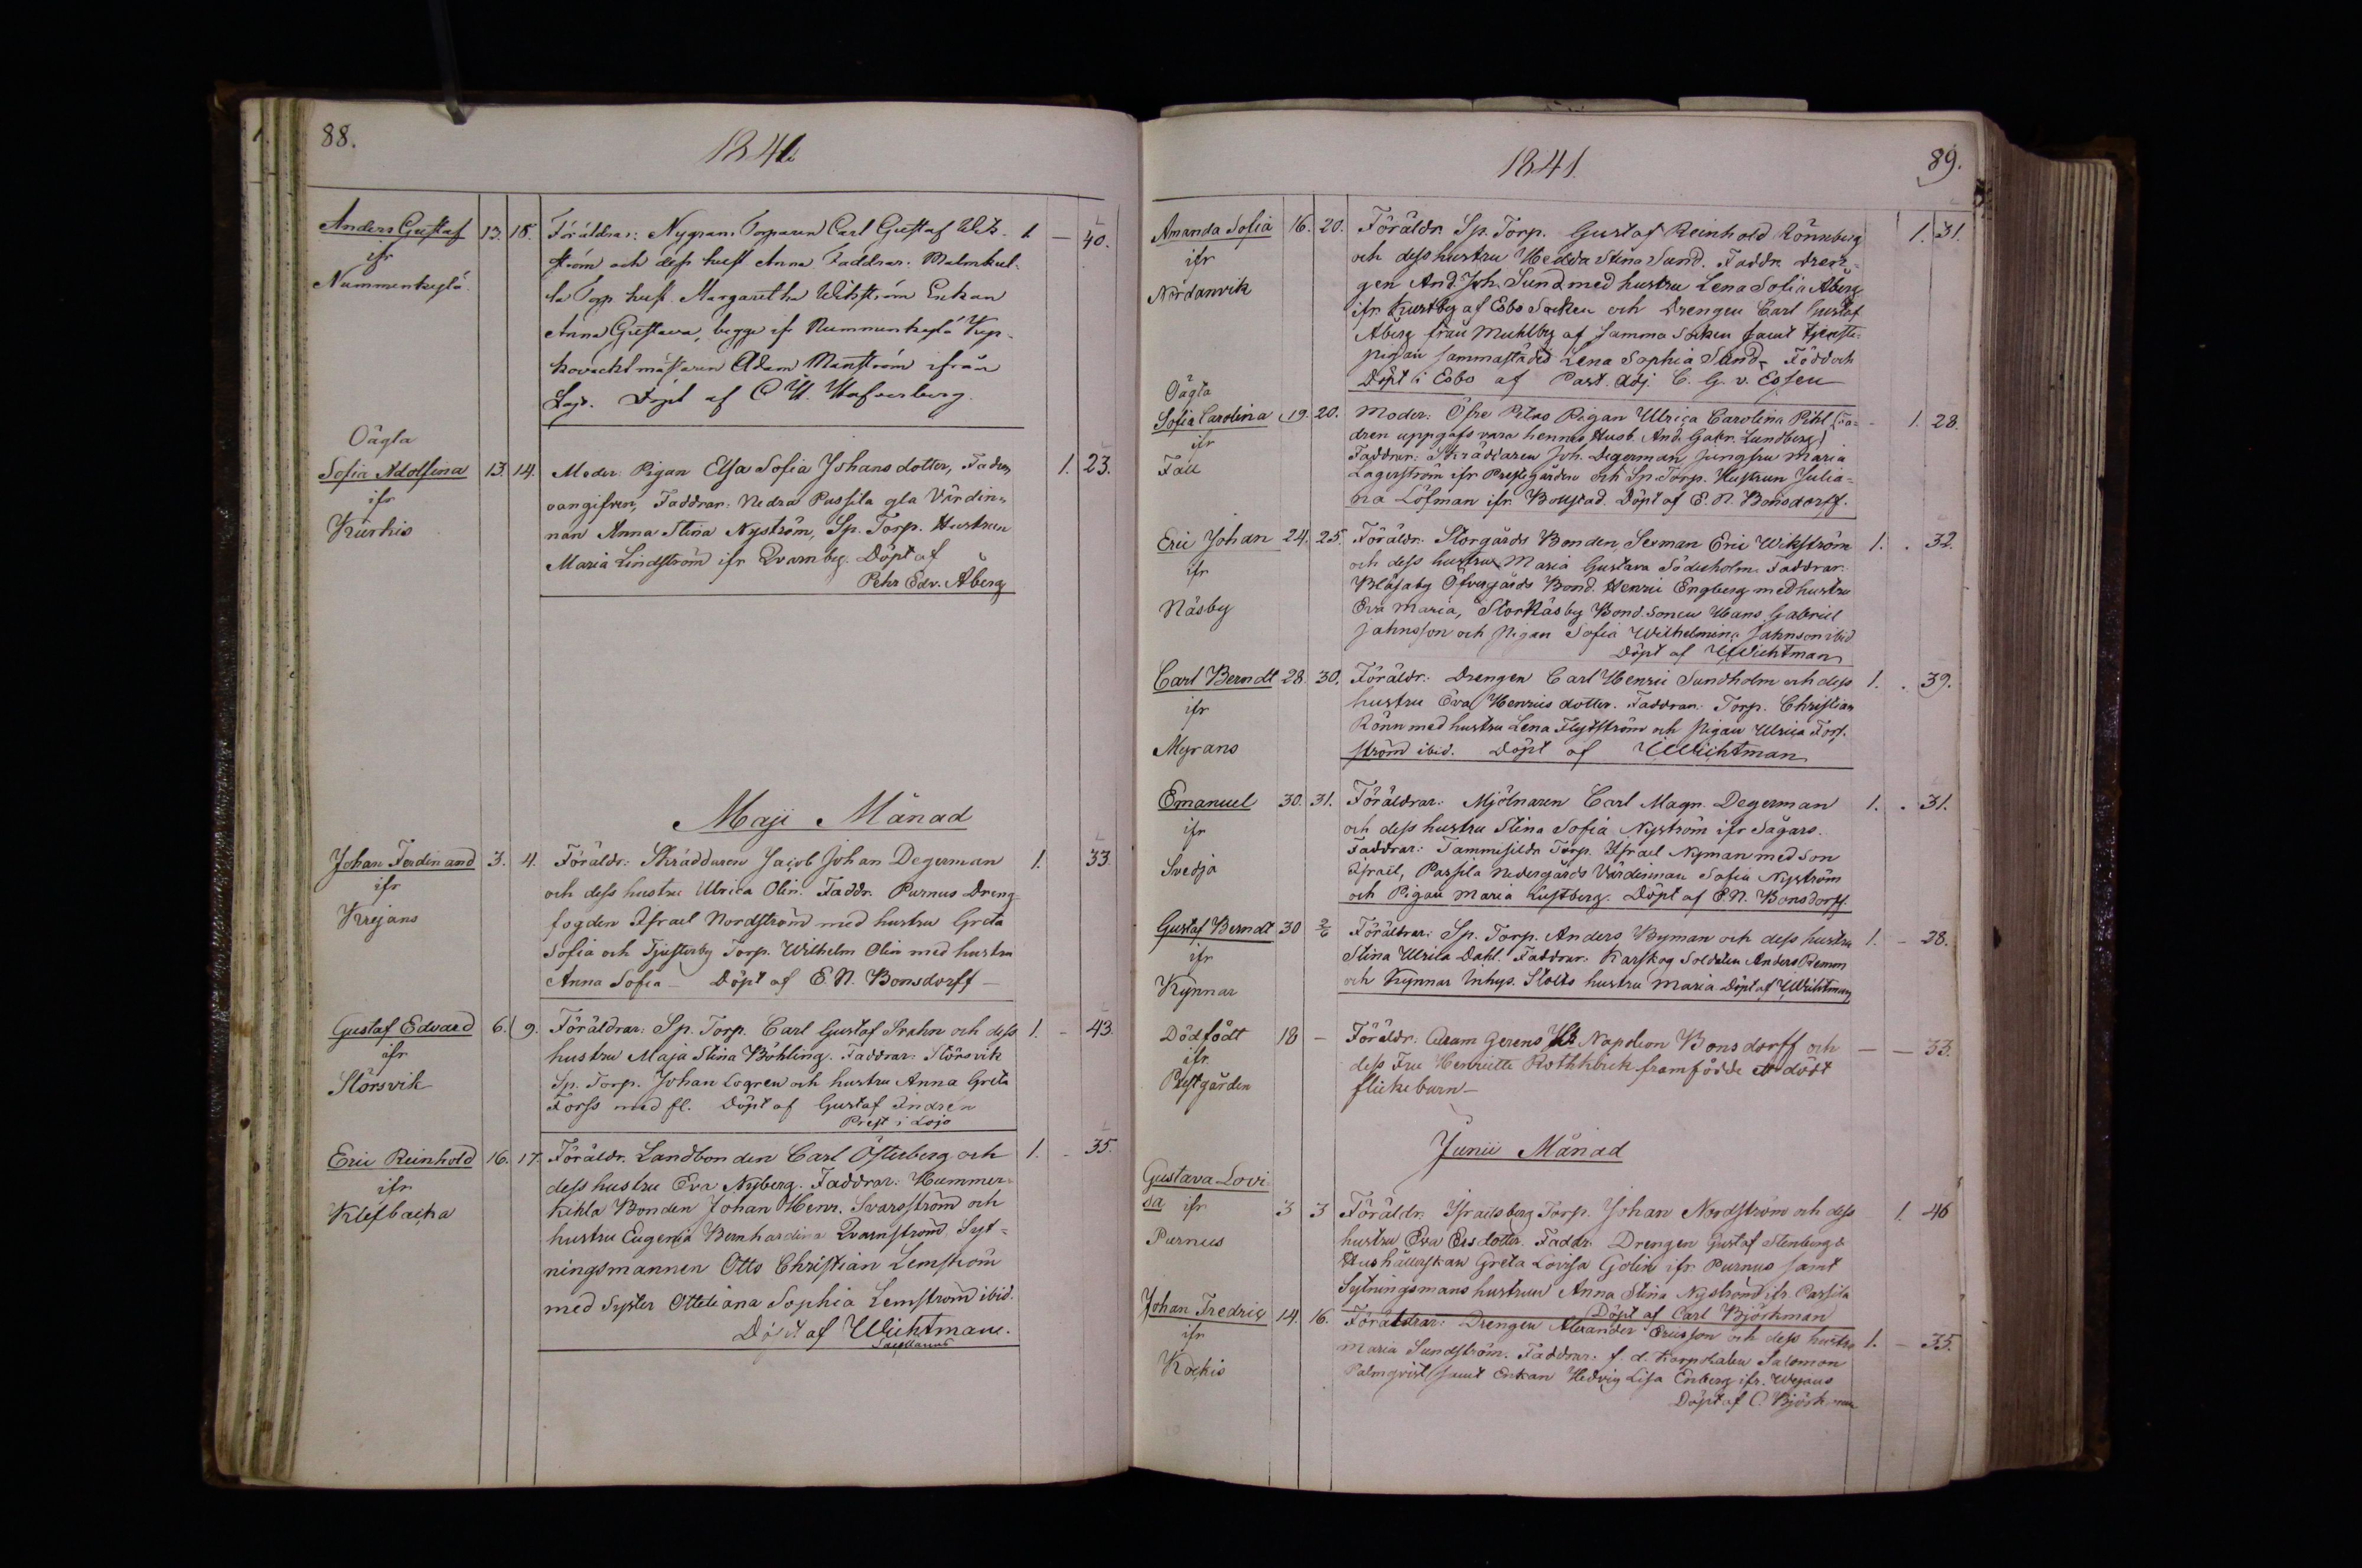 88.
1841
Anders Gustaf 13. 18. Föräldrar: Nygrans Torparen Carl Gustaf Wik- 1. — 40.
ifr
ström och dess hust. Anna. Faddrar. Malmkul-
Nummenkylä.
la Torp. hust. Margaretha Wikström Enkan
Anna Gustava, begge ifr Nummenkylä
Adam Manström ifrån
Lojo. Döpt af C. U. Hafverberg.
Oägta
Sofia Adolfina 13. 14. Moder: Pigan Elsa Sofia Johansdotter, Fadren 1. 23.
ifr
oangifven, Faddrar. Nedra Passila gla Värdin-
Kurkis
nan Anna Stina Nyström, Sp. Torp. Hustrun
Maria Lindström ifr Qvarnby. Döpt af
Pehr Edv. Åberg
Maji Månad
Johan Ferdinand 3. 4. Föräldr: Skräddaren Jacob Johan Degerman 1. 33.
ifr
och dess hustru Ulrica Olin. Faddr. Purnus Dreng-
Krejans
fogden Israel Nordström med hustru Greta
Sofia och Tjusterby Torp. Wilhelm Olin med hustru
Anna Sofia — Döpt af E. N. Bonsdorff —
Gustaf Edvard 6. 9. Föräldrar: Sp. Torp. Carl Gustaf Grahn och dess 1. - 43.
ifr
hustru Maja Stina Böhling. Faddrar: Störsvik
Störsvik
Sp. Torp. Johan Logren och hustru Anna Greta
Forss med fl. Döpt af Gustaf Indrén
Prest i Lojo
Eric Reinhold 16. 17. Föräldr. Landbonden Carl Österberg och 1. - 35.
ifr
dess hustru Eva Nyberg. Faddrar: Hummer-
Klefbacka
kihla Bonden Johan Henr. Svarsström och
hustru Eugenia Bernhardina Qvarnström Syt-
ningsmannen Otto Christian Lemström
med syster Otteliana Sophia Lemström ibid.
Döpt af Wichtman.
Sacellanus
1841.
89.
Amanda Sofia 16. 20. Föräldr. Sp. Torp. Gustaf Reinhold Rönnberg 1. 31.
ifr
och dess hustru Hedda Stina Sund. Faddr. Dren-
Nordanvik
gen And. Joh. Sund med hustru Lena Sofia Åberg
ifr Kurtby af Esbo Socken och Drengen Carl Gustaf
Åberg från Muhlby af samma Socken samt tjenste-
pigan sammastädes Lena Sophia Sund - Född och
Döpt i Esbo af Past. Adj. C. G. v. Essen
Oägta
Sofia Carolina 19. 20. Moder: Öfre Pikas Pigan Ulrica Carolina Pihl (Fa- - 1. 28.
ifr
dren uppgafs vara hennes Husb. And. Gabr. Lundberg)
Fall
Faddrar: Skräddaren Joh. Degerman, Jungfru Maria
Lagerström ifr Prestegården och Sp. Torp. Hustrun Julia-
na Löfman ifr. Bollstad. Döpt af E. N. Bonsdorff.
Eric Johan 24. 25. Föräldr. Storgårds Bonden, Sexman Eric Wikström 1. . 32.
ifr
och dess hustru Maria Gustava Söderholm. Faddrar.
Blåsaby Öfvergårds Bond. Henric Engberg med hustru
Näsby
Eva Maria, StorNäsby Bond.Sonen Hans Gabriel
Jahnsson och pigan Sofia Wilhelmina Jahnson ibid
Döpt af Wichtman
Carl Berndt 28. 30. Föräldr: Drengen Carl Henric Sundholm och dess 1. . 39.
ifr
hustru Eva Henricsdotter. Faddrar: Torp. Christian
Rönn med hustru Lena Flytström och pigan Ulrica Fors-
Myrans
ström ibid. Döpt af Wichtman
Emanuel 30. 31. Föräldrar: Mjölnaren Carl Magn. Degerman 1. . 31.
ifr
och dess hustru Stina Sofia Nyström ifr Sågars.
Svedja
Faddrar: Torp. Israel Nyman med Son
Israël, Passila Nedergårds Värdinnan Sofia Nyström
och Pigan Maria Lustberg. Döpt af E. N. Bonsdorff
Gustaf Berndt 30 2/6 Föräldrar: Sp. Torp. Anders Byman och dess hustru 1. - 28.
ifr
Stina Ulrika Dahl. Faddrar: Karskog Soldaten Anders Remm
Kynnar
och Kynnar Inhys. Stolts hustru Maria Döpt af Wichtman
Dödfödt 18 - Föräldr: Napoleon Bonsdorff och — — 33.
ifr.
dess Fru Henriette Rothkirch framfödde ett dödt
Prestgården
flickebarn —
Junii Månad
Gustava Lovi-
sa ifr 3 3 Föräldr. Israelsberg Torp. Johan Nordström och dess 1. 46
Purnus
hustru Eva Ersdotter. Faddr. Drengen Gustaf Stenberg &
Hushållerskan Greta Lovisa Golin ifr Purnus samt
Sytningsmans hustrun Anna Stina Nyström ifr. Passila
Döpt af Carl Björkman
Johan Fredric 14. 16. Föräldrar: Drengen Alexander Ericsson och dess hustru 1. - 35.
ifr
Maria Sundström. Faddrar: f. d. Korpralen Salomon
Kockis
Palmqvist samt Enkan Hedvig Lisa Enberg ifr. Wejans
Döpt af C. Björkman